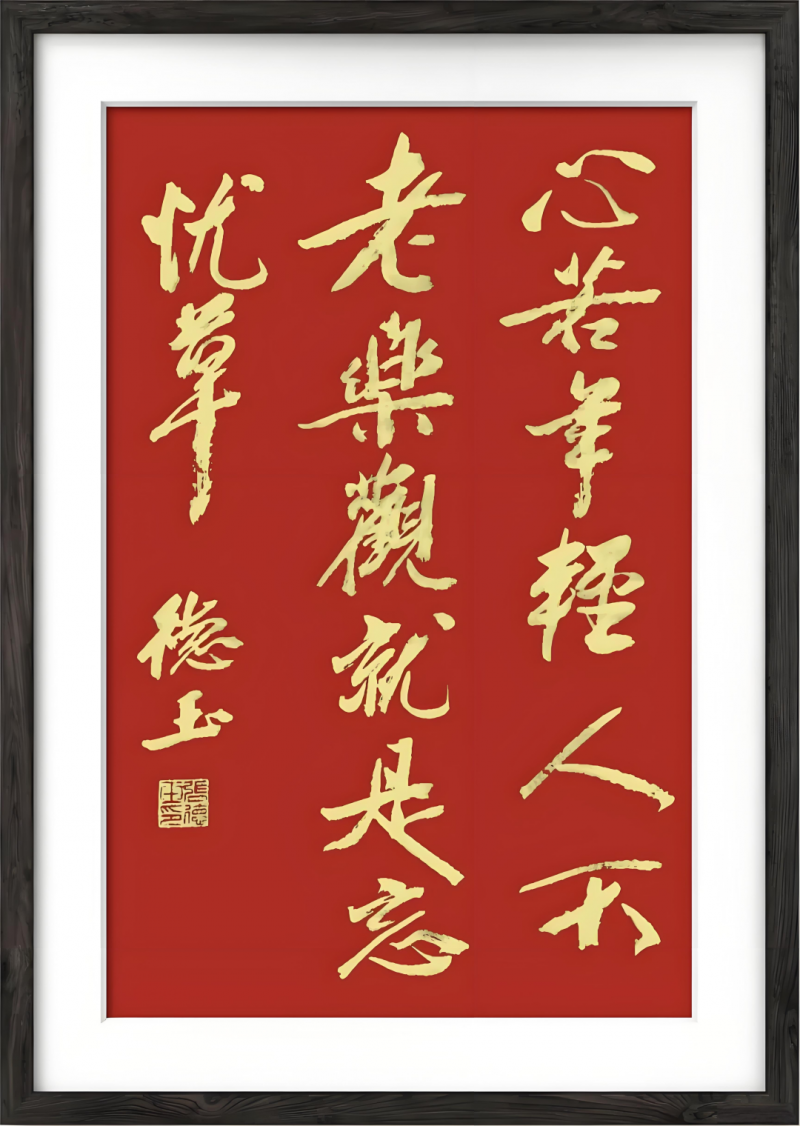 心若年輕人不
老樂觀就是忘
忧草
德玉
張德玉印